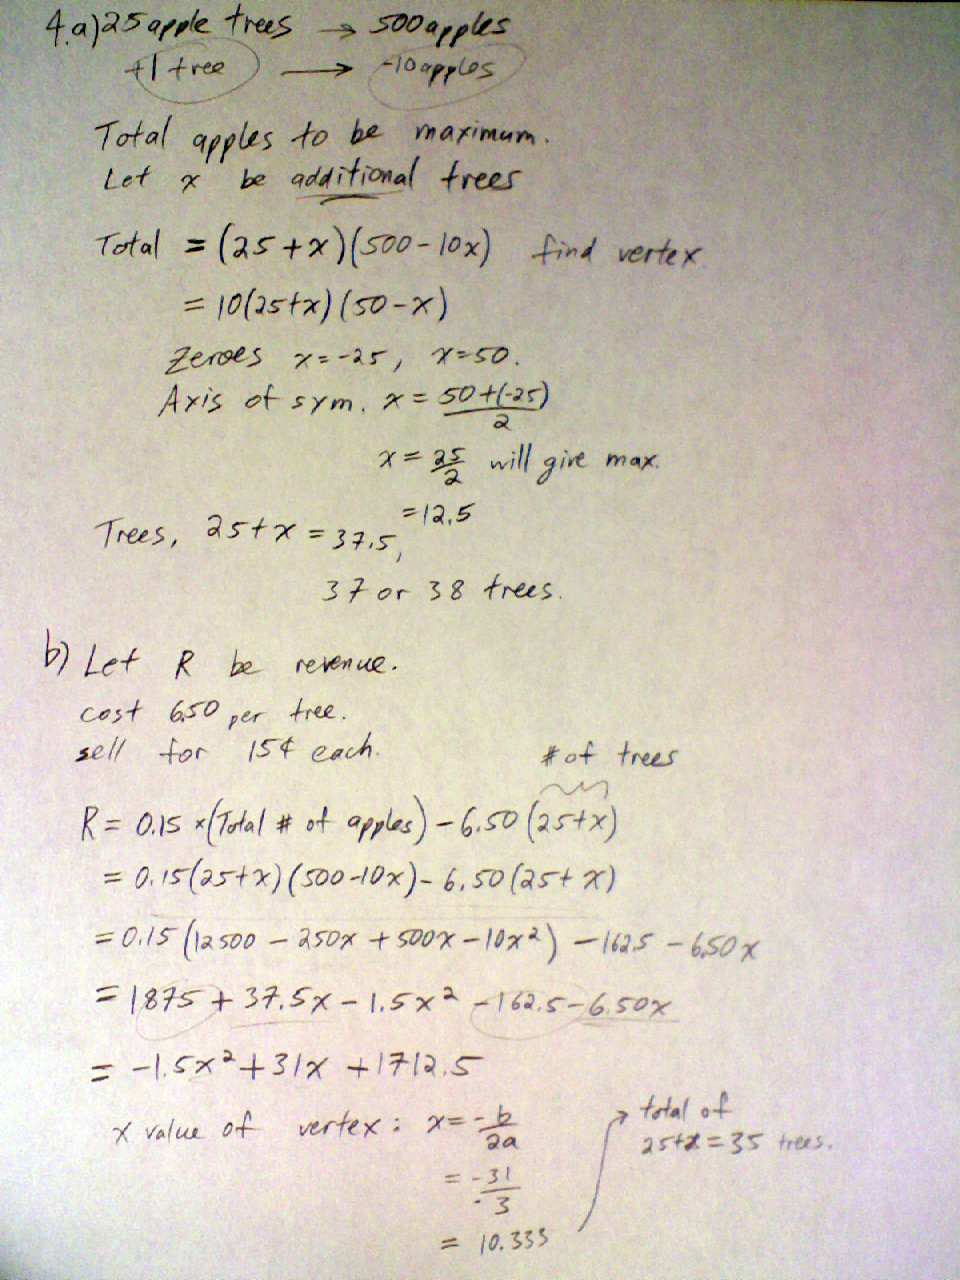 4.a) 25 apple trees → 500 apples
+1 tree → -10 apples
Total apples to be maximum.
Let x be additional trees
Total = (25+x)(500-10x) find vertex
= 10(25+x)(50-x)
Zeroes x=-25, x=50.
Axis of sym. x = 50+(-25)/2
x = 25/2 will give max.
=12.5
Trees, 25+x = 37.5,
37 or 38 trees.
b) Let R be revenue.
cost 6.50 per tree.
sell for 15¢ each.
# of trees
R = 0.15 x (Total # of apples) - 6.50 (25+x)
= 0.15(25+x)(500-10x) - 6.50(25+x)
= 0.15 (12500 - 250x + 500x - 10x²) - 162.5 - 6.50x
= 1875 + 37.5x - 1.5x² - 162.5 - 6.50x
= -1.5x² + 31x + 1712.5
x value of vertex: x = -b/2a
= -31/-3
= 10.333
→ total of
25+x = 35 trees.